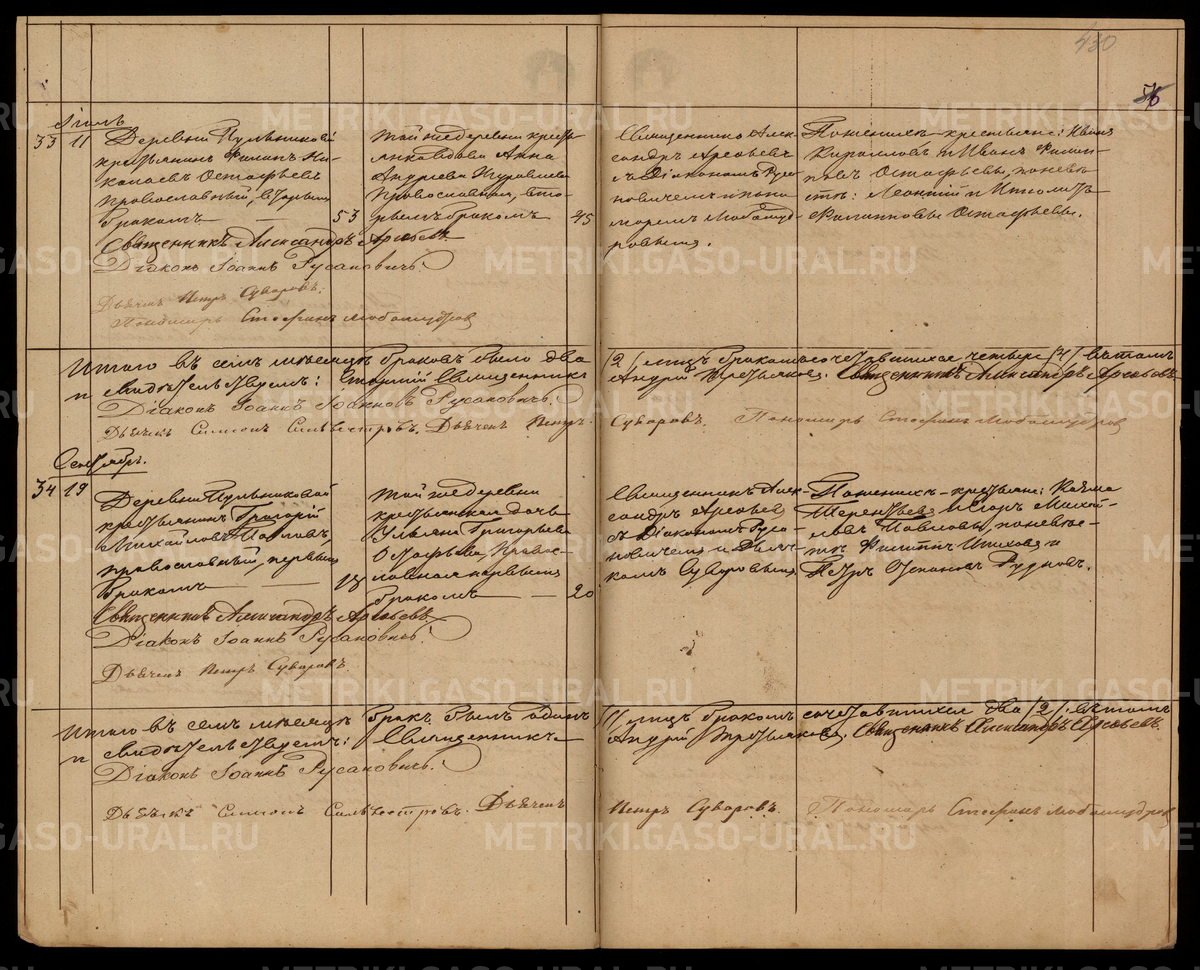 430
76
Іюль
33 11 Деревни Пульниковой
крестьянинъ Филипъ Ни-
колаевъ Остафьевъ
православный, вторымъ
бракомъ — 53
той же деревни кресть-
янка вдова Анна
Андреева Журавлева
православная, вто-
рымъ бракомъ 45
Священникъ Алек-
сандръ Арефьевъ
съ Діакономъ Руса-
новичемъ и поно-
маремъ Любомуд-
ровымъ.
По женихѣ — крестьяне: Иванъ
Кирилловъ и Иванъ Филип-
повъ Остафьевы, по невѣ-
стѣ: Леонтій и Ипполитъ
Филипповы Остафьевы.
Священникъ Александръ Арефьевъ
Діаконъ Іоаннъ Русановичъ.
Дьячекъ Петръ Суворовъ.
Пономарь Стефанъ Любомудровъ
Итого въ семъ мѣсяцѣ браковъ было два /2/ лицъ бракомъ сочетавшихся четыре /4/ въ томъ
и свидѣтельствуемъ: Старшій Священникъ Андрей Третьяковъ. Священникъ Александръ Арефьевъ
Діаконъ Іоаннъ Іоанновъ Русановичъ.
Дьячекъ Симеонъ Сильвестровъ. Дьячекъ Петръ Суворовъ. Пономарь Стефанъ Любомудровъ
Сентябрь.
34 19 Деревни Пульниковой
крестьянинъ Григорій
Михайловъ Павловъ,
православный, первымъ
бракомъ — 18
той же деревни
крестьянская дочь
Ульяна Григорьева
Остафьева, Правос-
лавная первымъ
бракомъ — 20
Священникъ Алек-
сандръ Арефьевъ
съ Діакономъ Руса-
новичемъ и Дьяч-
комъ Суворовымъ
По женихѣ — крестьяне: Козма
Терентьевъ и Егоръ Михай-
ловъ Павловы, по невѣс-
тѣ Филиппъ и
Петръ Рудновъ.
Священникъ Александръ Арефьевъ
Діаконъ Іоаннъ Русановичъ.
Дьячекъ Петръ Суворовъ.
Итого въ семъ мѣсяцѣ бракъ былъ одинъ /1/ лицъ бракомъ сочетавшихся два /2/ въ томъ
и свидѣтельствуемъ: Священникъ Андрей Третьяковъ. Священникъ Александръ Арефьевъ.
Діаконъ Іоаннъ Русановичъ.
Дьячекъ Симеонъ Сильвестровъ. Дьячекъ Петръ Суворовъ. Пономарь Стефанъ Любомудровъ
METRIKI.GASO-URAL.RU